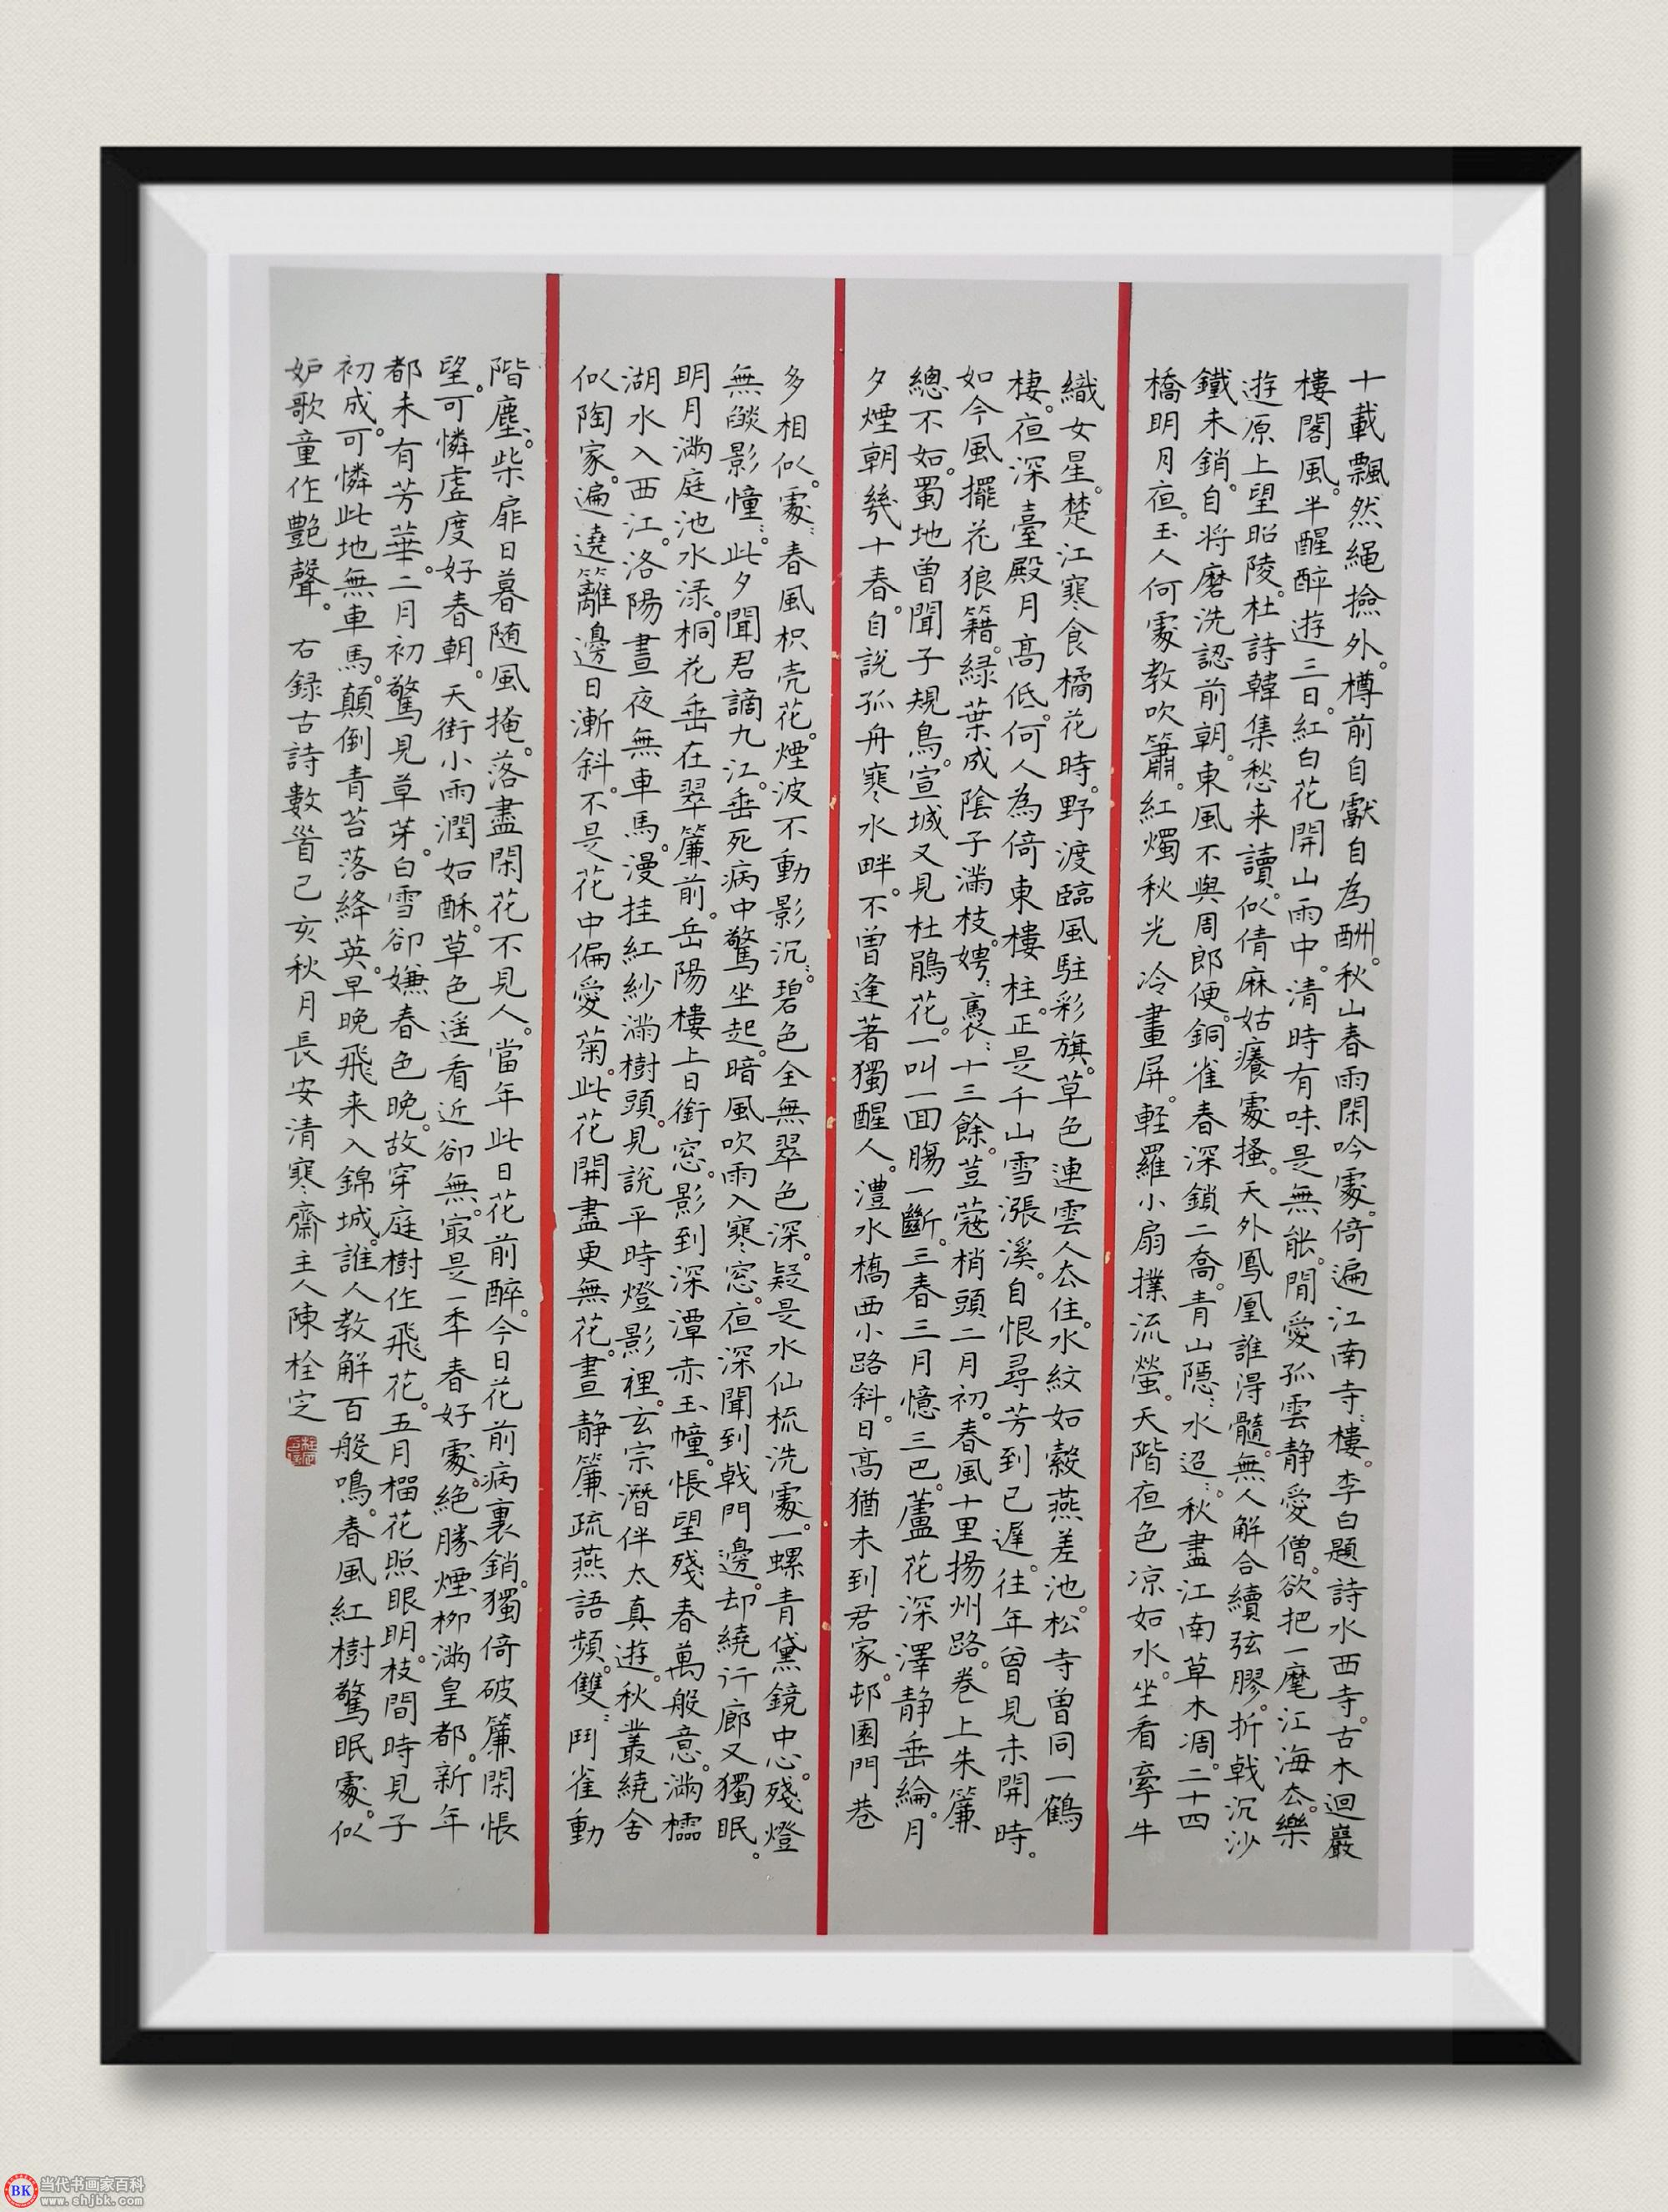 十載飄然繩撿外。樽前自獻自為酬。秋山春雨閑吟處。倚遍江南寺〻樓。李白題詩水西寺。古木迴巖
樓閣風。半醒醉遊三日。紅白花開山雨中。清時有味是無能。閒愛孤雲靜愛僧。欲把一麾江海去。樂
遊原上望昭陵。杜詩韓集愁来讀。似倩麻姑癢處搔。天外鳳凰誰得髓。無人解合續弦膠。折戟沉沙
鐵未銷。自将磨洗認前朝。東風不與周郎便。銅雀春深鎖二喬。青山隱〻水迢〻。秋盡江南草木凋。二十四
橋明月夜。玉人何處教吹簫。紅燭秋光冷畫屏。輕羅小扇撲流螢。天階夜色凉如水。坐看牽牛
織女星。楚江寒食橘花時。野渡臨風駐彩旗。草色連雲人去住。水紋如縠燕差池。松寺曾同一鶴
棲。夜深臺殿月高低。何人為倚東樓柱。正是千山雪漲溪。自恨尋芳到已遲。往年曾見未開時。
如今風擺花狼籍。緑葉成陰子滿枝。娉〻褭〻十三餘。荳蔻梢頭二月初。春風十里揚州路。卷上朱簾
總不如。蜀地曾聞子規鳥。宣城又見杜鵑花。一叫一回腸一斷。三春三月憶三巴。蘆花深澤静垂綸。月
夕煙朝幾十春。自說孤舟寒水畔。不曾逢著獨醒人。澧水橋西小路斜。日高猶未到君家。邨園門巷
多相似。處〻春風枳壳花。煙波不動影沉〻。碧色全無翠色深。疑是水仙梳洗處。一螺青黛鏡中心。殘燈
無燄影憧〻。此夕聞君謫九江。垂死病中驚坐起。暗風吹雨入寒窓。夜深聞到戟門邊。却繞行廊又獨眠。
明月滿庭池水渌。桐花垂在翠簾前。岳陽樓上日銜窓。影到深潭赤玉幢。悵望殘春萬般意。滿櫺
湖水入西江。洛陽晝夜無車馬。漫挂紅紗滿樹頭。見說平時燈影裡。玄宗潛伴太真遊。秋叢繞舍
似陶家。遍遶籬邊日漸斜。不是花中偏愛菊。此花開盡更無花。晝静簾疏燕語頻。雙〻鬥雀動
階塵〻。柴扉日暮随風掩。落盡閑花不見人。當年此日花前醉。今日花前病裏銷。獨倚破簾閑悵
望。可憐虛度好春朝。天街小雨潤如酥。草色遥看近卻無。最是一年春好處。絕勝煙柳滿皇都。新年
都未有芳華。二月初驚見草芽。白雪卻嫌春色晚。故穿庭樹作飛花。五月榴花照眼明。枝間時見子
初成。可憐此地無車馬。顛倒青苔落絳英。早晚飛来入錦城。誰人教解百般鳴。春風紅樹驚眠處。似
妒歌童作艷聲。 右録古詩數首己亥秋月長安清寒齋主人陳栓定
当代书画家百科
www.shjbk.com
BK